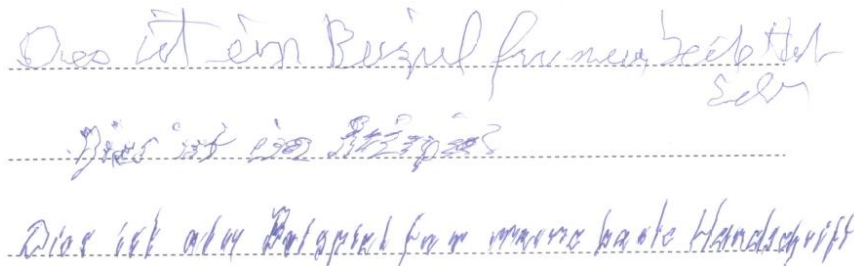 Dies ist ein Beispiel für meine beste Hand
Schr
Dies ist ein Beispiel
Dies ist ein Beispiel für meine beste Handschrift